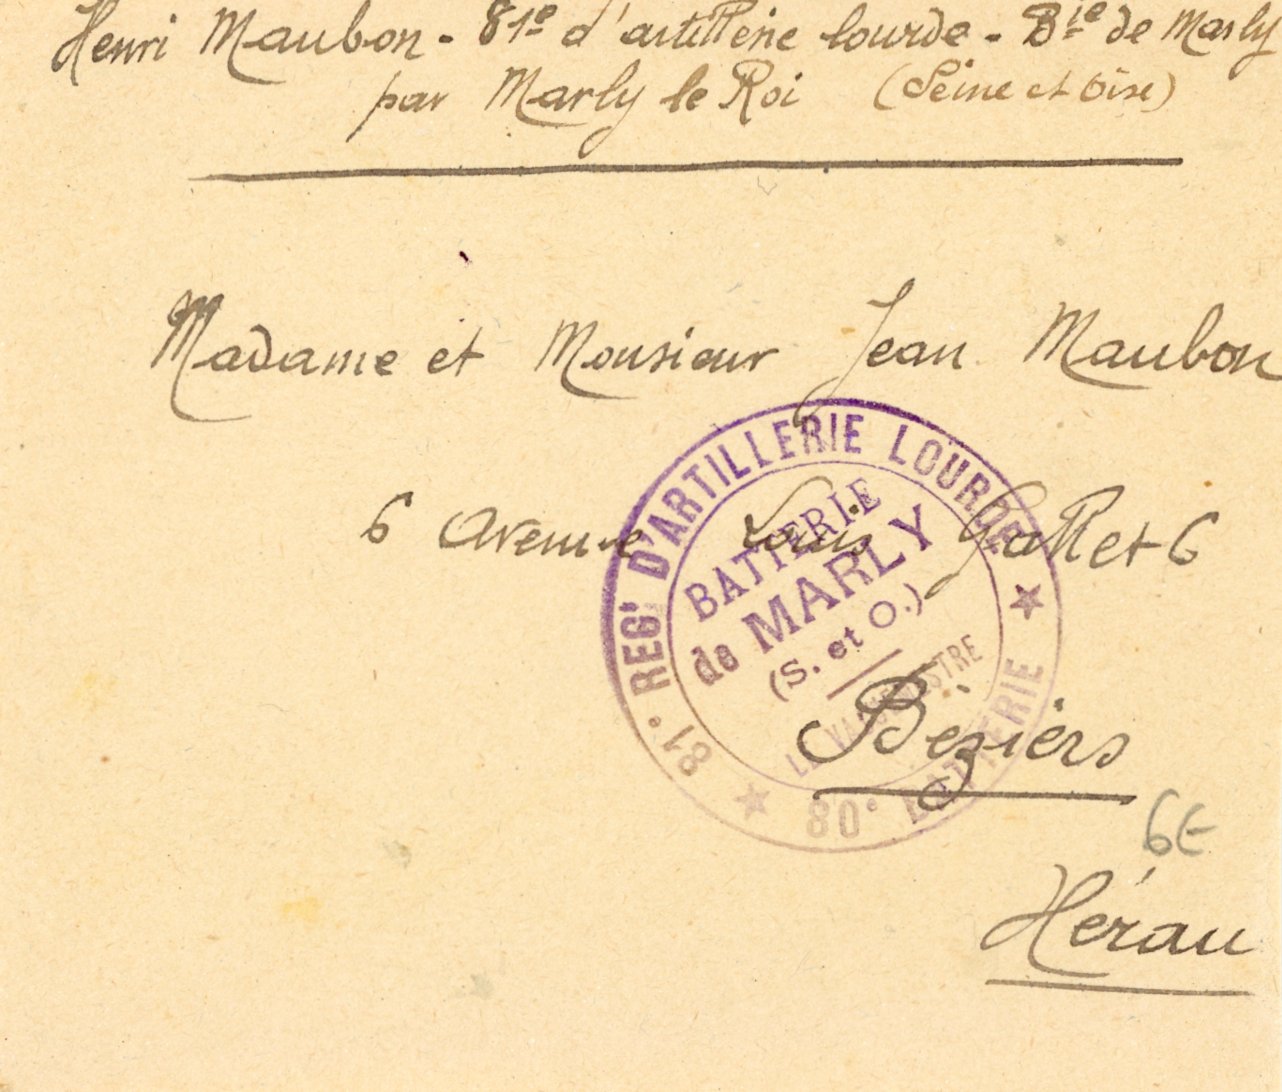 Henri Maubon - 81e d'artillerie lourde - Bie de Marly
par Marly le Roi (Seine et Oise)
Madame et Monsieur Jean Maubon
6 Avenue Louis Gallet 6
Béziers
6€
Hérau
81e REGt D'ARTILLERIE LOURDE
BATTERIE
de MARLY
(S. et O.)
LE VAGUEMESTRE
80e BATTERIE